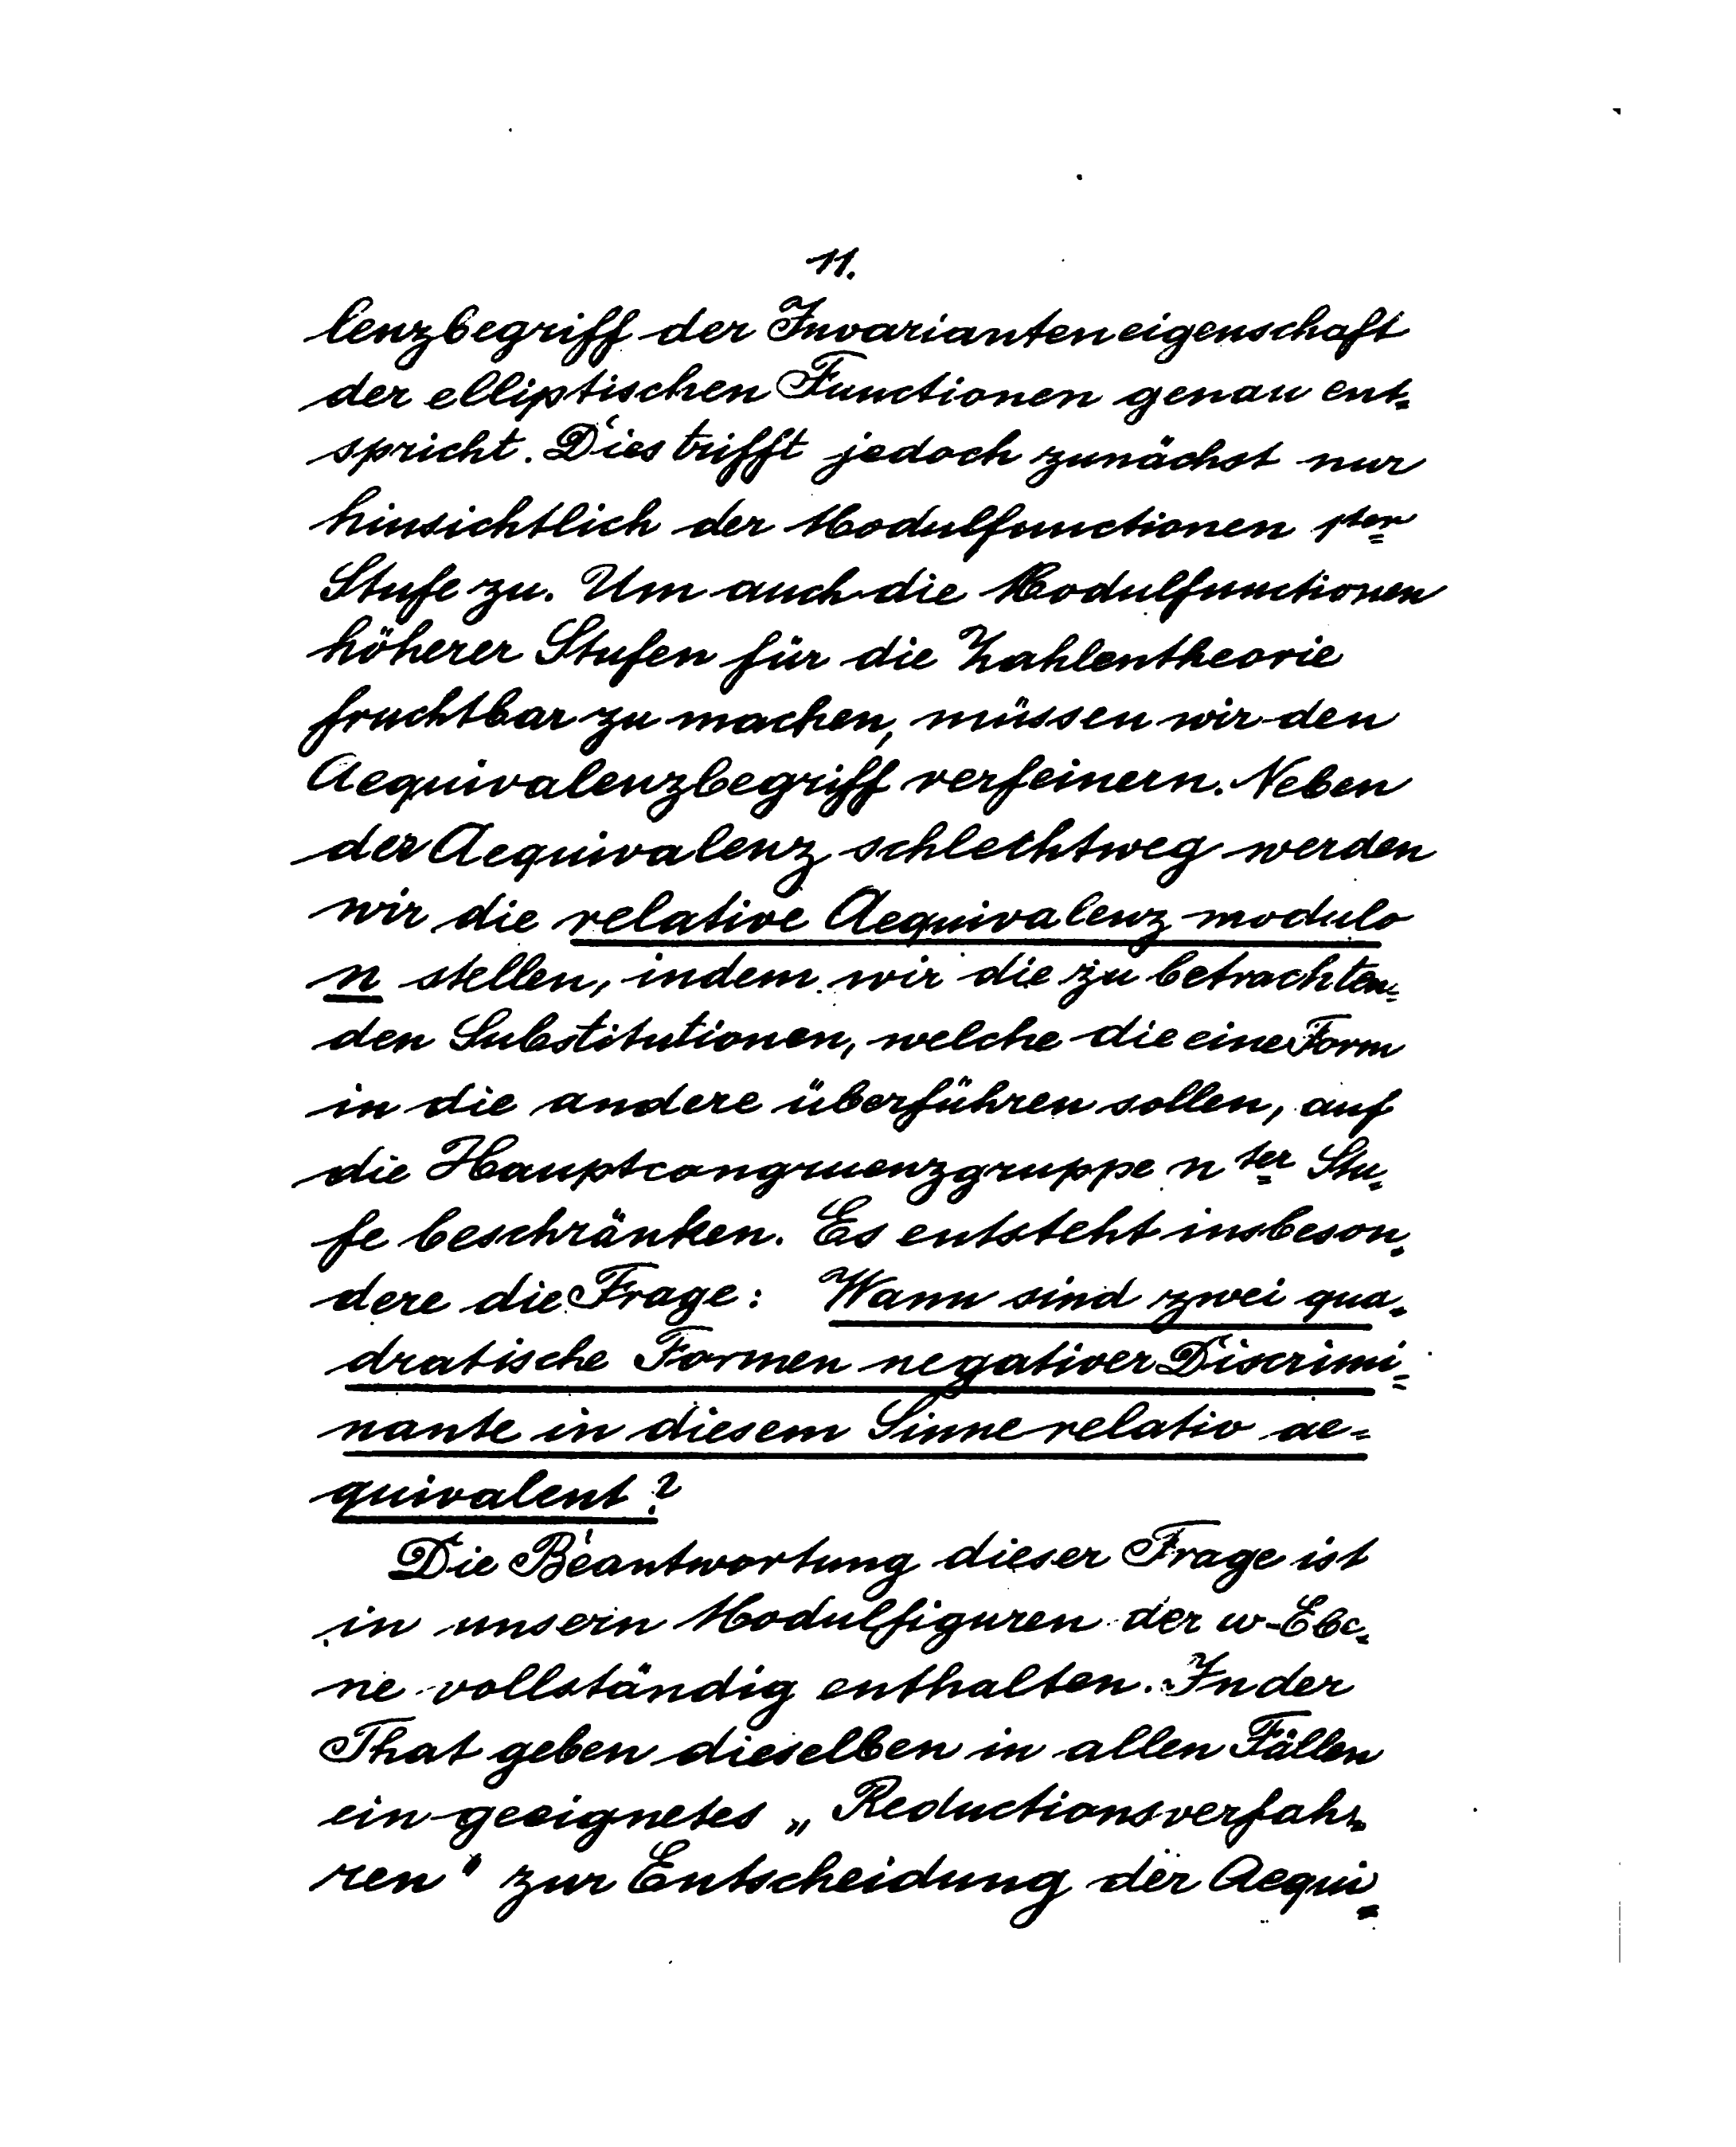 11.
lenzbegriff der Invarianteneigenschaft
der elliptischen Functionen genau ent-
spricht. Dies trifft jedoch zunächst nur
hinsichtlich der Modulfunctionen 1ter
Stufe zu. Um auch die Modulfunctionen
höherer Stufen für die Zahlentheorie
fruchtbar zu machen, müssen wir den
Aequivalenzbegriff verfeinern. Neben
der Aequivalenz schlechtweg werden
wir die relative Aequivalenz modulo
n stellen, indem wir die zu betrachten-
den Substitutionen, welche die eine Form
in die andere überführen sollen, auf
die Hauptcongruenzgruppe nter Stu-
fe beschränken. Es entsteht insbeson-
dere die Frage: Wann sind zwei qua-
dratische Formen negativer Discrimi-
nante in diesem Sinne relativ ae-
quivalent?
Die Beantwortung dieser Frage ist
in unsern Modulfiguren der ω-Ebe-
ne vollständig enthalten. In der
That geben dieselben in allen Fällen
ein geeignetes „Reductionsverfah-
ren" zur Entscheidung der Aequi-